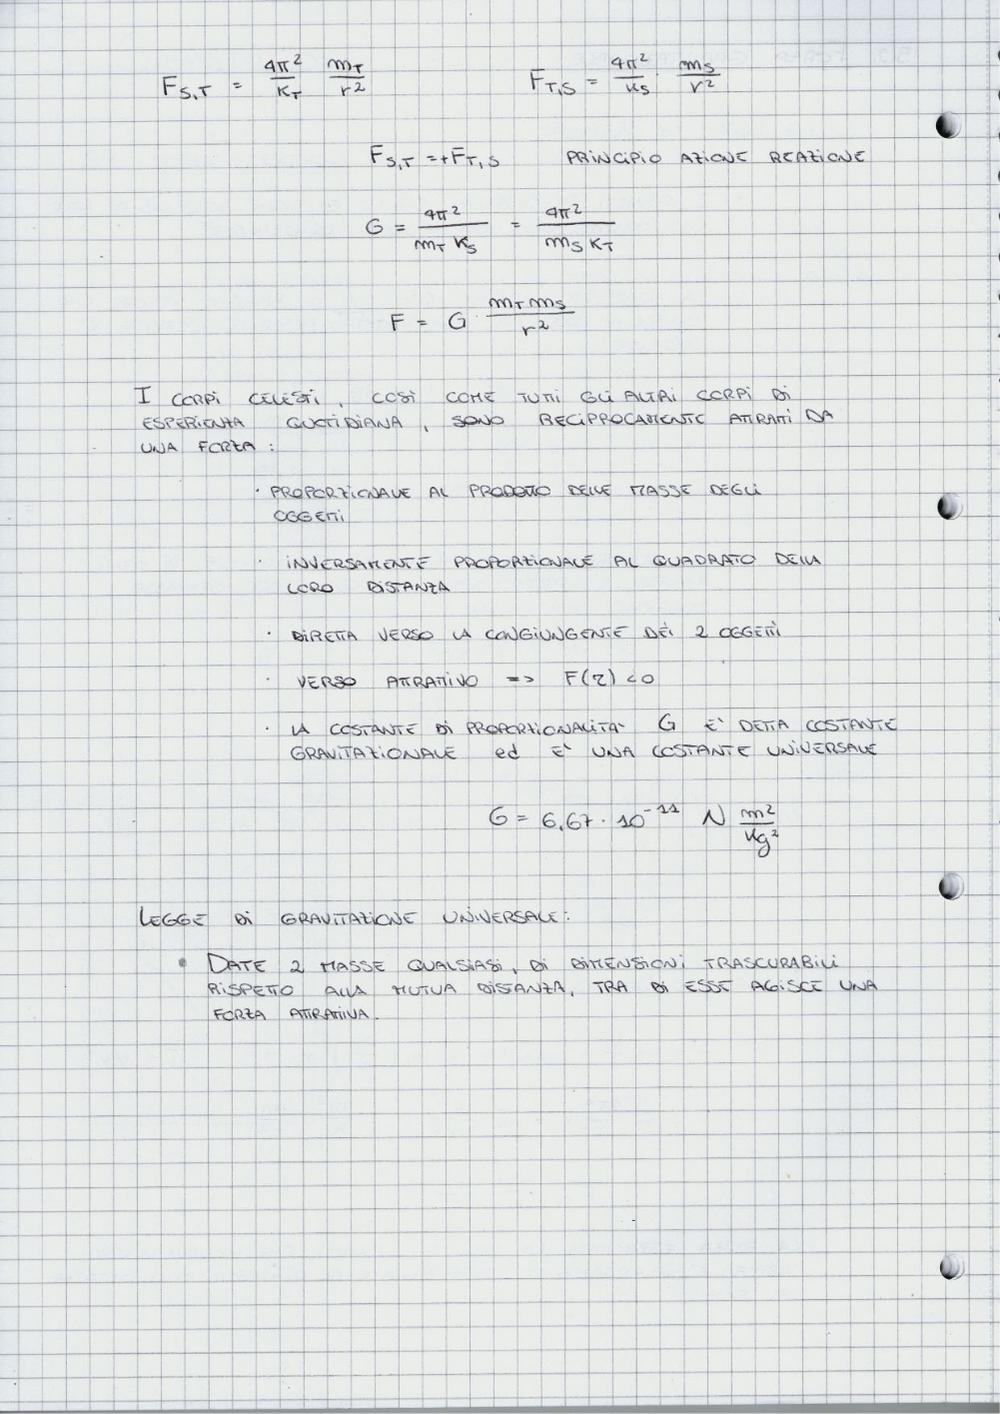 F_S,T = 4π²/K_T m_T/r²    F_T,S = 4π²/K_S m_S/r²
F_S,T = + F_T,S    PRINCIPIO AZIONE REAZIONE
G = 4π²/(m_T K_S) = 4π²/(m_S K_T)
F = G · m_T m_S/r²
I CORPI CELESTI, COSÌ COME TUTTI GLI ALTRI CORPI DI
ESPERIENZA QUOTIDIANA, SONO RECIPROCAMENTE ATTRATTI DA
UNA FORZA :
· PROPORZIONALE AL PRODOTTO DELLE MASSE DEGLI
OGGETTI
· INVERSAMENTE PROPORZIONALE AL QUADRATO DELLA
LORO DISTANZA
· DIRETTA VERSO LA CONGIUNGENTE DEI 2 OGGETTI
· VERSO ATTRATTIVO => F(r) <0
· LA COSTANTE DI PROPORZIONALITA' G E' DETTA COSTANTE
GRAVITAZIONALE ed E' UNA COSTANTE UNIVERSALE
G = 6,67 · 10⁻¹¹ N m²/kg²
LEGGE DI GRAVITAZIONE UNIVERSALE:
• DATE 2 MASSE QUALSIASI, DI DIMENSIONI TRASCURABILI
RISPETTO ALLA MUTUA DISTANZA, TRA DI ESSE AGISCE UNA
FORZA ATTRATTIVA.